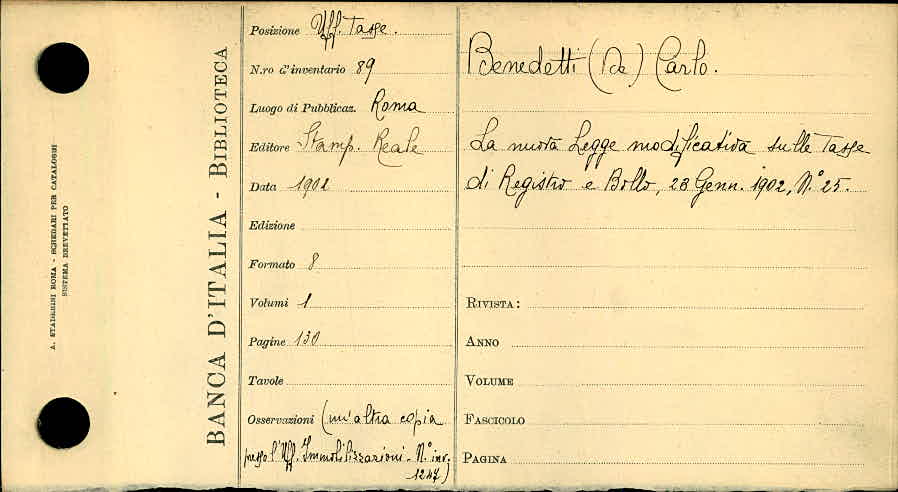 A. STADERINI ROMA - SCHEDARI PER CATALOGHI
SISTEMA BREVETTATO
BANCA D'ITALIA - BIBLIOTECA
Posizione Uff. Tasse.
N.ro d'inventario 89
Luogo di Pubblicaz. Roma
Editore Stamp. Reale
Data 1902
Edizione
Formato 8
Volumi 1
Pagine 130
Tavole
Osservazioni (un'altra copia
presso l'Uff. Immobilizzazioni - N.° inv.
1247)
Benedetti (De) Carlo.
La nuova Legge modificativa sulle Tasse
di Registro e Bollo, 23 Genn. 1902, N.° 25.
RIVISTA:
ANNO
VOLUME
FASCICOLO
PAGINA